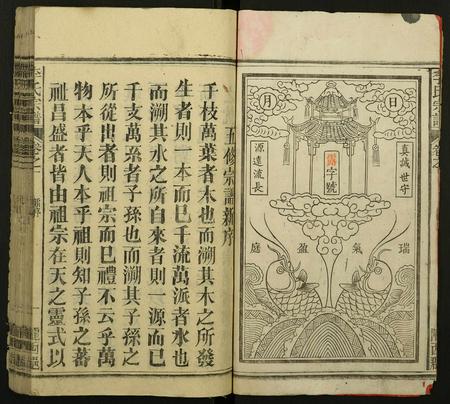 日
月
真誠世守
源遠流長
露
字號
瑞氣盈庭
李氏宗譜
五修宗譜新序
千枝萬葉者木也而溯其木之所發
生者則一本而已千流萬派者水也
而溯其水之所自來者則一源而已
千支萬系者子孫也而溯其子孫之
所從出者則祖宗而已禮不云乎萬
物本乎天人本乎祖則知子孫之蕃
祖昌盛者皆由祖宗在天之靈式以
李氏宗譜